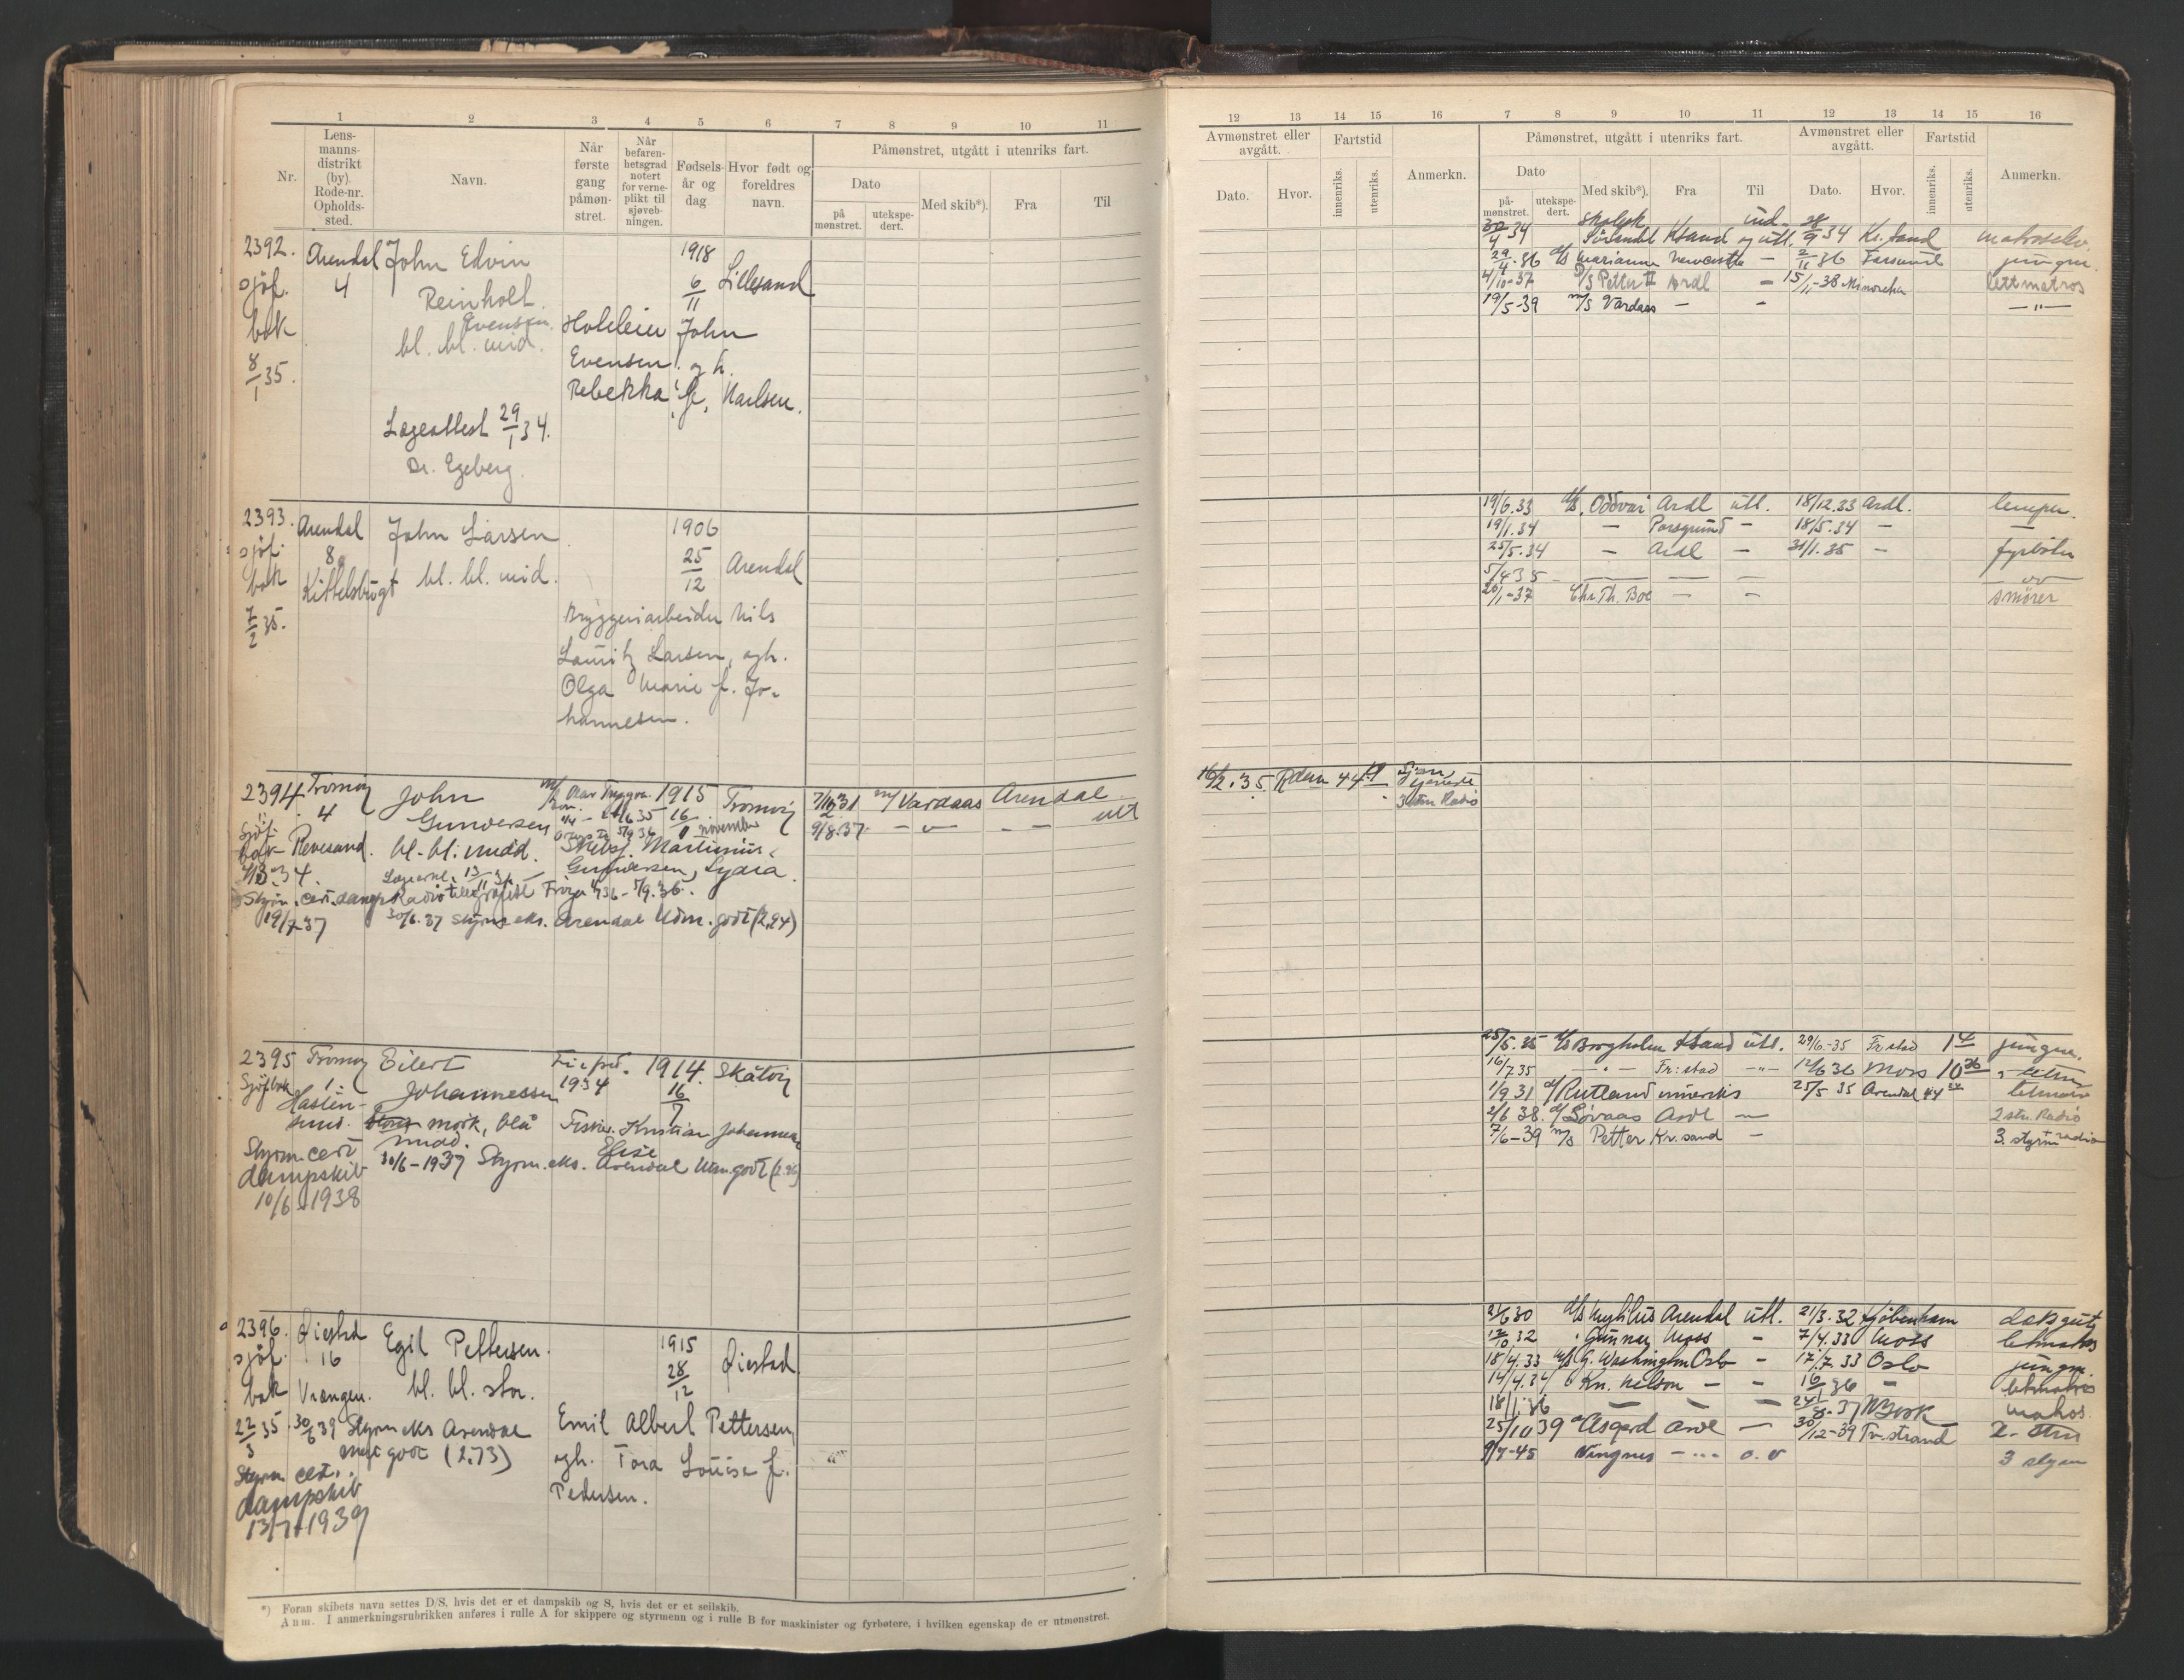 1 2 3 4 5 6 7 8 9 10 11
Nr.
Lens-
manns-
distrikt
(by).
Rode-nr.
Opholds-
sted.
Navn.
Når
første
gang
påmøn-
stret.
Når
befaren-
hetsgrad
notert
for verne-
plikt til
sjøveb-
ningen.
Fødsels-
år og
dag
Hvor født og
foreldres
navn.
Påmønstret, utgått i utenriks fart.
Dato
på
mønstret.
utekspe-
dert.
Med skib*).
Fra
Til
2392. Arendal John Edvin 1918
sjöf. 4 Reinholt 6/11 Lillesand
bok Evensen
8/1 35. bl. bl. mid.
John
Evensen og h.
Rebekka f. Karlsen.
Lægeattest 29/1 34.
Dr. Egeberg.
2393. Arendal John Larsen 1906
sjöf. 8 25/12 Arendal
bok Kittelsbugt bl. bl. mid.
7/2 35.
Bryggeriarbeider Nils
Lauritz Larsen, ogh.
Olga Marie f. Jo-
hannesen.
2394 Tromøy John 1915 Tromøy 7/12 31 m/ Vardaas Arendal
4 Gundersen 16 november 9/8.37 utl
Sjöf.
bok Revesand. bl. bl. midd.
Gundersen, Lydia
Styrm. cert. damp Radiotelegrafist
19/7-37 30/6.37 styrms eks. Arendal Udm. godt (2,94)
2395 Tromøy Eilert 1914. Skåtøy
Sjöfbok 1 Johannessen 1934 16/7
mörk, blå Fisker. Kristian Johannesen
midd. Elise
Styrm. cert 30/6-1937 Styrm. eks. Arendal Udm. godt
dampskib
10/6-1938
2396. Øiestad Egil Pettersen. 1915
sjöf. 16 28/12 Øiestad
bok Vrængen. bl. bl. stor.
22/3 35. 30/6 39 Styrm eks Arendal Emil Albert Pettersen,
meget godt (2,73) ogh. Tora Louise f.
Styrm cert. Pedersen.
dampskib
13/7-1939
*) Foran skibets navn settes D/S, hvis det er et dampskib og S, hvis det er et seilskib.
Anm. I anmerkningsrubrikken anføres i rulle A for skippere og styrmenn og i rulle B for maskinister og fyrbøtere, i hvilken egenskap de er utmønstret.
12 13 14 15 16 7 8 9 10 11 12 13 14 15 16
Avmønstret eller
avgått.
Fartstid
Dato.
Hvor.
innenriks.
utenriks.
Anmerkn.
Påmønstret, utgått i utenriks fart.
Dato
på-
mønstret.
utekspe-
dert.
Med skib*).
Fra
Til
Avmønstret eller
avgått.
Dato.
Hvor.
Fartstid
innenriks.
utenriks.
Anmerkn.
30/4 34 Skolesk. Sörlandet Ksand ind. og utl. 28/9 34 Kr. sand matroselev.
29/4.36 d/s Marianne Newcastle - 2/11 36 Farsund jungm.
4/10-37 D/S Petter II Ardl - 15/1-38 lettmatros
19/5-39 m/s Vardaas - - -"-
19/6.33 d/s. Oddvar Ardl utl. 18/12.33 Ardl. lemper.
19/1.34 - Porsgrund - 18/5.34 - -
25/5.34 - Ardl - 31/1.35 - fyrböter
5/4 35 - - -
20/1-37 Chr. Th. Boe - - smörer
16/2.35 Rdam 44
3 stm Radio
25/5.35 d/s Borgholm Ksand utl. 29/6-35 Fr.stad jungm.
16/7 35 - " - Fr:stad -"- 12/6 36 Moss
1/9 31 d/ Rutland 25/5 35 Arendal 44
2/6 38. d/ Lovaas Ardl - 2 stm. Radio
7/6-39 m/s Petter Kr. sand - 3. styrm + radio
21/6 30 d/s Mytilus Arendal utl. 21/3.32 Kjöbenhavn dæksgut
12/10 32 " Gunny Moss - 7/4.33 Moss letmatros
18/4.33 m/s G. Washington Oslo - 17/7.33 Oslo jungm
14/4.34 " Kn. Nelson - - 16/ 36 - letmatros
18/1.36 - - N York matros.
25/10 39 d/ Asgerd Ardl - 30/12-39 Fr.strand 2. stm
9/7-45 Vingnes - ... o. v 3 styrm